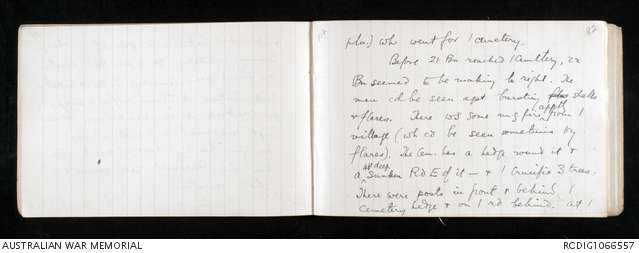 82
pln.) wh went for / cemetery.
Before 21 Bn reached / Cemetery, 22
Bn seemed to be making to right. The
men cd be seen agst bursting shells
& flares. There ws some m.g fire (apptly from /
village (wh cd be seen sometimes by
flares). The Cem. has a hedge round it &
a 4ft deep sunken Rd E of it — & / Crucifix 3 trees.
There were posts in front & behind /
cemetery hedge & on / rd behind. At /
AUSTRALIAN WAR MEMORIAL
RCDIG1066557